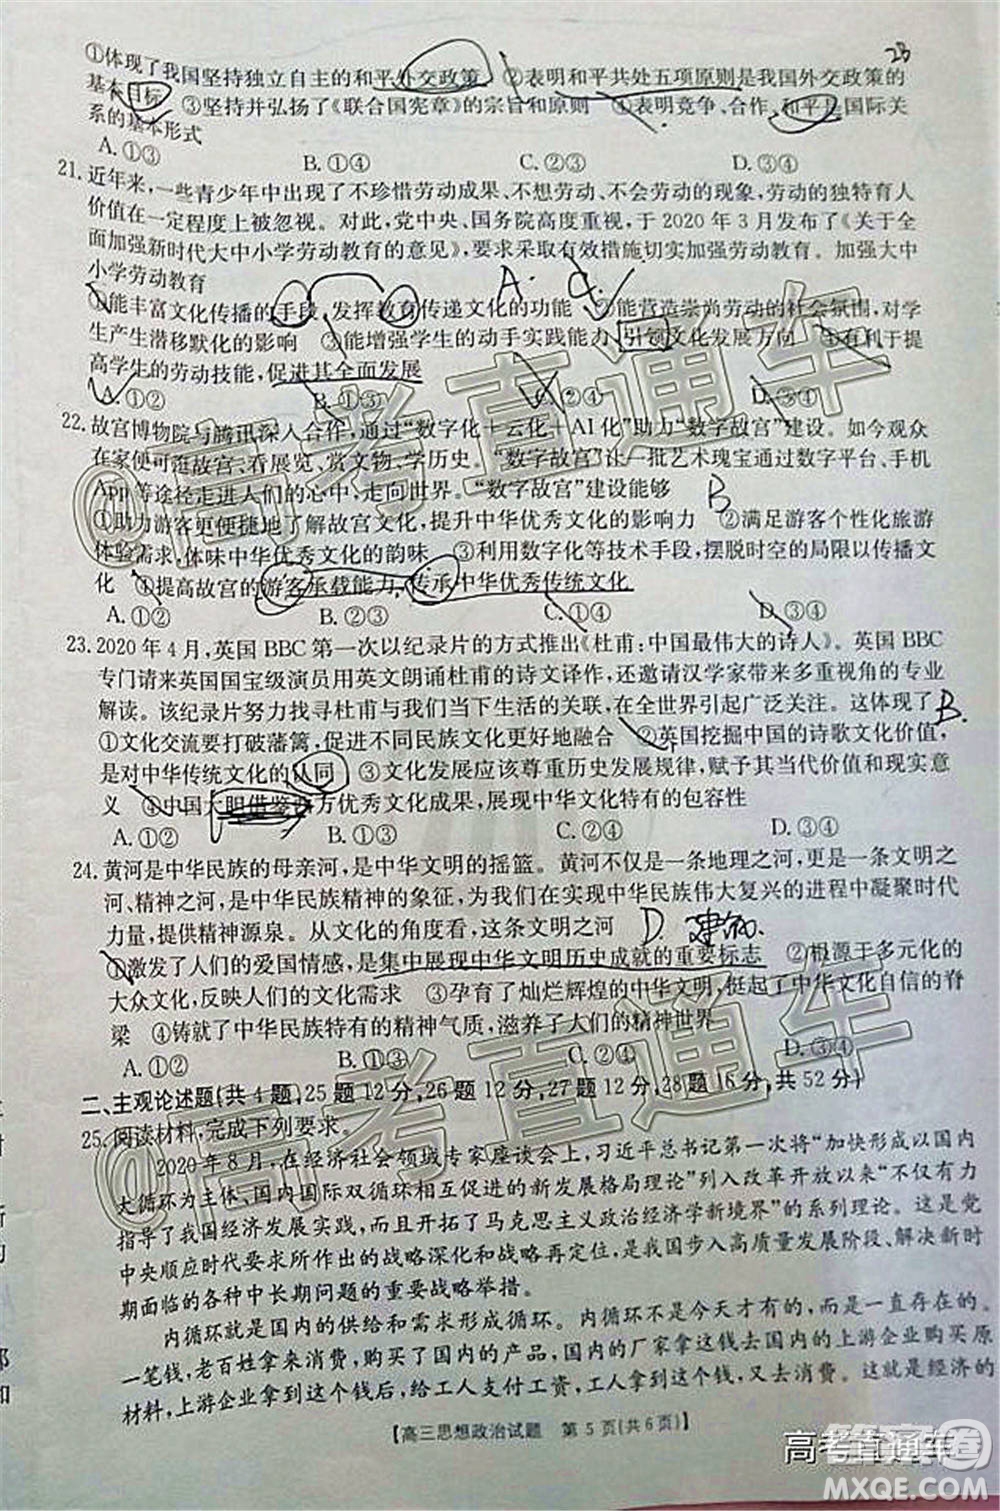 23
①体现了我国坚持独立自主的和平外交政策 ②表明和平共处五项原则是我国外交政策的
基本目标 ③坚持并弘扬了《联合国宪章》的宗旨和原则 ④表明竞争、合作、和平是国际关
系的基本形式
A.①③ B.①④ C.②③ D.②④
21.近年来,一些青少年中出现了不珍惜劳动成果、不想劳动、不会劳动的现象,劳动的独特育人
价值在一定程度上被忽视。对此,党中央、国务院高度重视,于2020年3月发布了《关于全
面加强新时代大中小学劳动教育的意见》,要求采取有效措施切实加强劳动教育。加强大中
小学劳动教育
①能丰富文化传播的手段,发挥教育传递文化的功能 ②能营造崇尚劳动的社会氛围,对学
生产生潜移默化的影响 ③能增强学生的动手实践能力,引领文化发展方向 ④有利于提
高学生的劳动技能,促进其全面发展
A.①② B.①③ C.②④ D.③④
22.故宫博物院与腾讯深入合作,通过“数字化+云化+AI化”助力“数字故宫”建设。如今观众
在家便可逛故宫、看展览、赏文物、学历史。“数字故宫”让一批艺术瑰宝通过数字平台、手机
App等途径走进人们的心中,走向世界。“数字故宫”建设能够 B
①助力游客更便捷地了解故宫文化,提升中华优秀文化的影响力 ②满足游客个性化旅游
体验需求,体味中华优秀文化的韵味 ③利用数字化等技术手段,摆脱时空的局限以传播文
化 ④提高故宫的游客承载能力,传承中华优秀传统文化
A.①② B.②③ C.①④ D.③④
23.2020年4月,英国BBC第一次以纪录片的方式推出《杜甫:中国最伟大的诗人》。英国BBC
专门请来英国国宝级演员用英文朗诵杜甫的诗文译作,还邀请汉学家带来多重视角的专业
解读。该纪录片努力找寻杜甫与我们当下生活的关联,在全世界引起广泛关注。这体现了 B.
①文化交流要打破藩篱,促进不同民族文化更好地融合 ②英国挖掘中国的诗歌文化价值,
是对中华传统文化的认同 ③文化发展应该尊重历史发展规律,赋予其当代价值和现实意
义 ④中国大胆借鉴西方优秀文化成果,展现中华文化特有的包容性
A.①② B.①③ C.②④ D.③④
24.黄河是中华民族的母亲河,是中华文明的摇篮。黄河不仅是一条地理之河,更是一条文明之
河、精神之河,是中华民族精神的象征,为我们在实现中华民族伟大复兴的进程中凝聚时代
力量,提供精神源泉。从文化的角度看,这条文明之河 D
①激发了人们的爱国情感,是集中展现中华文明历史成就的重要标志 ②根源于多元化的
大众文化,反映人们的文化需求 ③孕育了灿烂辉煌的中华文明,挺起了中华文化自信的脊
梁 ④铸就了中华民族特有的精神气质,滋养了人们的精神世界
A.①② B.①③ C.②④ D.③④
二、主观论述题(共4题,25题12分,26题12分,27题12分,28题16分,共52分)
25.阅读材料,完成下列要求。
2020年8月,在经济社会领域专家座谈会上,习近平总书记第一次将“加快形成以国内
大循环为主体、国内国际双循环相互促进的新发展格局理论”列入改革开放以来“不仅有力
指导了我国经济发展实践,而且开拓了马克思主义政治经济学新境界”的系列理论。这是党
中央顺应时代要求所作出的战略深化和战略再定位,是我国步入高质量发展阶段、解决新时
期面临的各种中长期问题的重要战略举措。
内循环就是国内的供给和需求的循环。内循环不是今天才有的,而是一直存在的。
一笔钱,老百姓拿来消费,购买了国内的产品,国内的厂家拿这些钱去国内的上游企业购买原
材料,上游企业拿到这个钱后,给工人支付工资,工人拿到这个钱后又去消费。这就是经济的
【高三思想政治试题 第5页(共6页)】
@高考直通车
@高考直通车
高考直通车
MXQE.COM